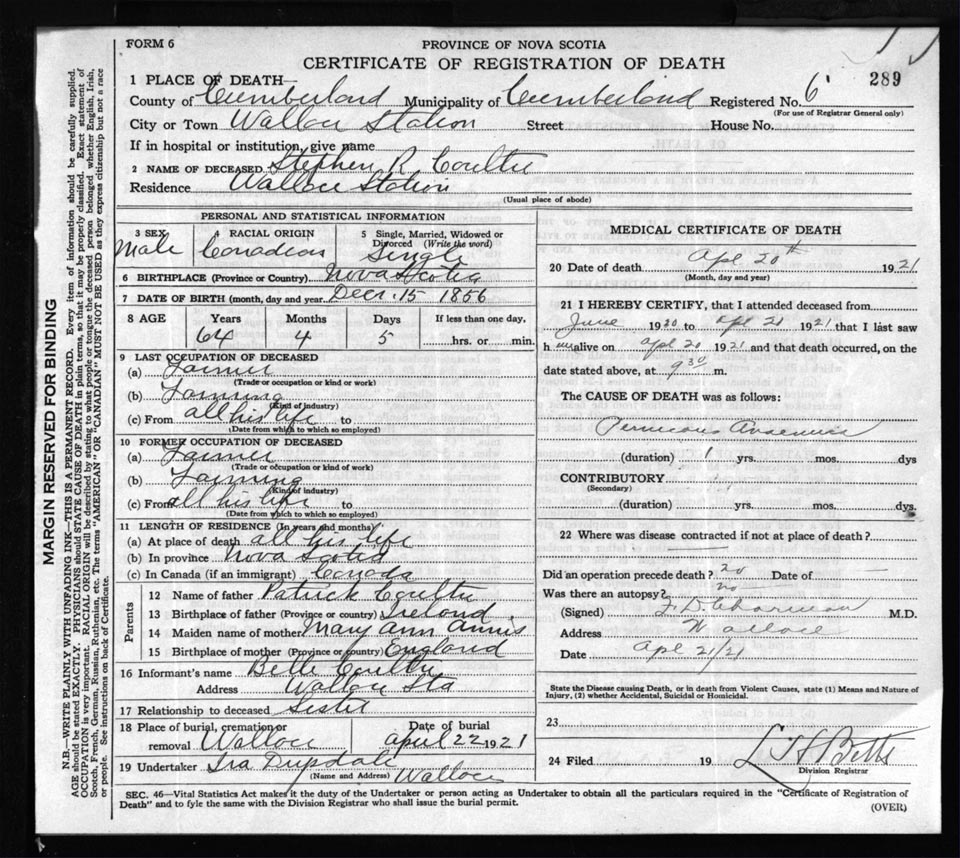 FORM 6
PROVINCE OF NOVA SCOTIA
CERTIFICATE OF REGISTRATION OF DEATH
289
1 PLACE OF DEATH—
County of Cumberland Municipality of Cumberland Registered No. 6
(For use of Registrar General only)
City or Town Wallace Station Street House No.
If in hospital or institution, give name
2 NAME OF DECEASED Stephen R Coulter
Residence Wallace Station
(Usual place of abode)
PERSONAL AND STATISTICAL INFORMATION
3 SEX 4 RACIAL ORIGIN 5 Single, Married, Widowed or Divorced (Write the word)
Male Canadian Single
6 BIRTHPLACE (Province or Country) Nova Scotia
7 DATE OF BIRTH (month, day and year Decr. 15 1856
8 AGE Years Months Days If less than one day.
64 4 5 hrs. or min.
9 LAST OCCUPATION OF DECEASED
(a) Farmer
(Trade or occupation or kind or work)
(b) Farming
(Kind of industry)
(c) From all his life to
(Date from which to which so employed)
10 FORMER OCCUPATION OF DECEASED
(a) Farmer
(Trade or occupation or kind of work)
(b) Farming
(Kind of industry)
(c) From all his life to
(Date from which to which so employed)
11 LENGTH OF RESIDENCE (In years and months)
(a) At place of death all his life
(b) In province Nova Scotia
(c) In Canada (if an immigrant) Canada
Parents
12 Name of father Patrick Coulter
13 Birthplace of father (Province or country) Ireland
14 Maiden name of mother Mary Ann Annis
15 Birthplace of mother (Province or country) England
16 Informant's name Belle Coulter
Address Wallace Sta
17 Relationship to deceased Sister
18 Place of burial, cremation or removal Wallace Date of burial April 22 1921
19 Undertaker Ira Wallace
(Name and Address)
MEDICAL CERTIFICATE OF DEATH
20 Date of death Apl 20th 1921
(Month, day and year)
21 I HEREBY CERTIFY, that I attended deceased from
June 1920 to Apl 20 1921 that I last saw
h im alive on Apl 20 1921 and that death occurred, on the
date stated above, at 9 30 m.
The CAUSE OF DEATH was as follows:
Pernicious Anaemia
(duration) 1 yrs. mos. dys
CONTRIBUTORY
(Secondary)
(duration) yrs. mos. dys.
22 Where was disease contracted if not at place of death?
Did an operation precede death? no Date of —
Was there an autopsy? no
(Signed) M.D.
Address Wallace
Date Apl 21/21
State the Disease causing Death, or in death from Violent Causes, state (1) Means and Nature of
Injury, (2) whether Accidental, Suicidal or Homicidal.
23
24 Filed 19 Betts
Division Registrar
SEC. 46—Vital Statistics Act makes it the duty of the Undertaker or person acting as Undertaker to obtain all the particulars required in the "Certificate of Registration of
Death" and to fyle the same with the Division Registrar who shall issue the burial permit.
(OVER)
MARGIN RESERVED FOR BINDING
N.B.—WRITE PLAINLY WITH UNFADING INK—THIS IS A PERMANENT RECORD. Every item of information should be carefully supplied.
AGE should be stated EXACTLY. PHYSICIANS should STATE CAUSE OF DEATH in plain terms, so that it may be properly classified. Exact statement of
OCCUPATION is very important. RACIAL ORIGIN will be described by stating to what people or tongue the deceased person belonged whether English, Irish,
Scotch, French, German, Russian, Ruthenian, etc. The terms "AMERICAN" OR "CANADIAN" MUST NOT BE USED as they express citizenship but not a race
or people. See instructions on back of Certificate.